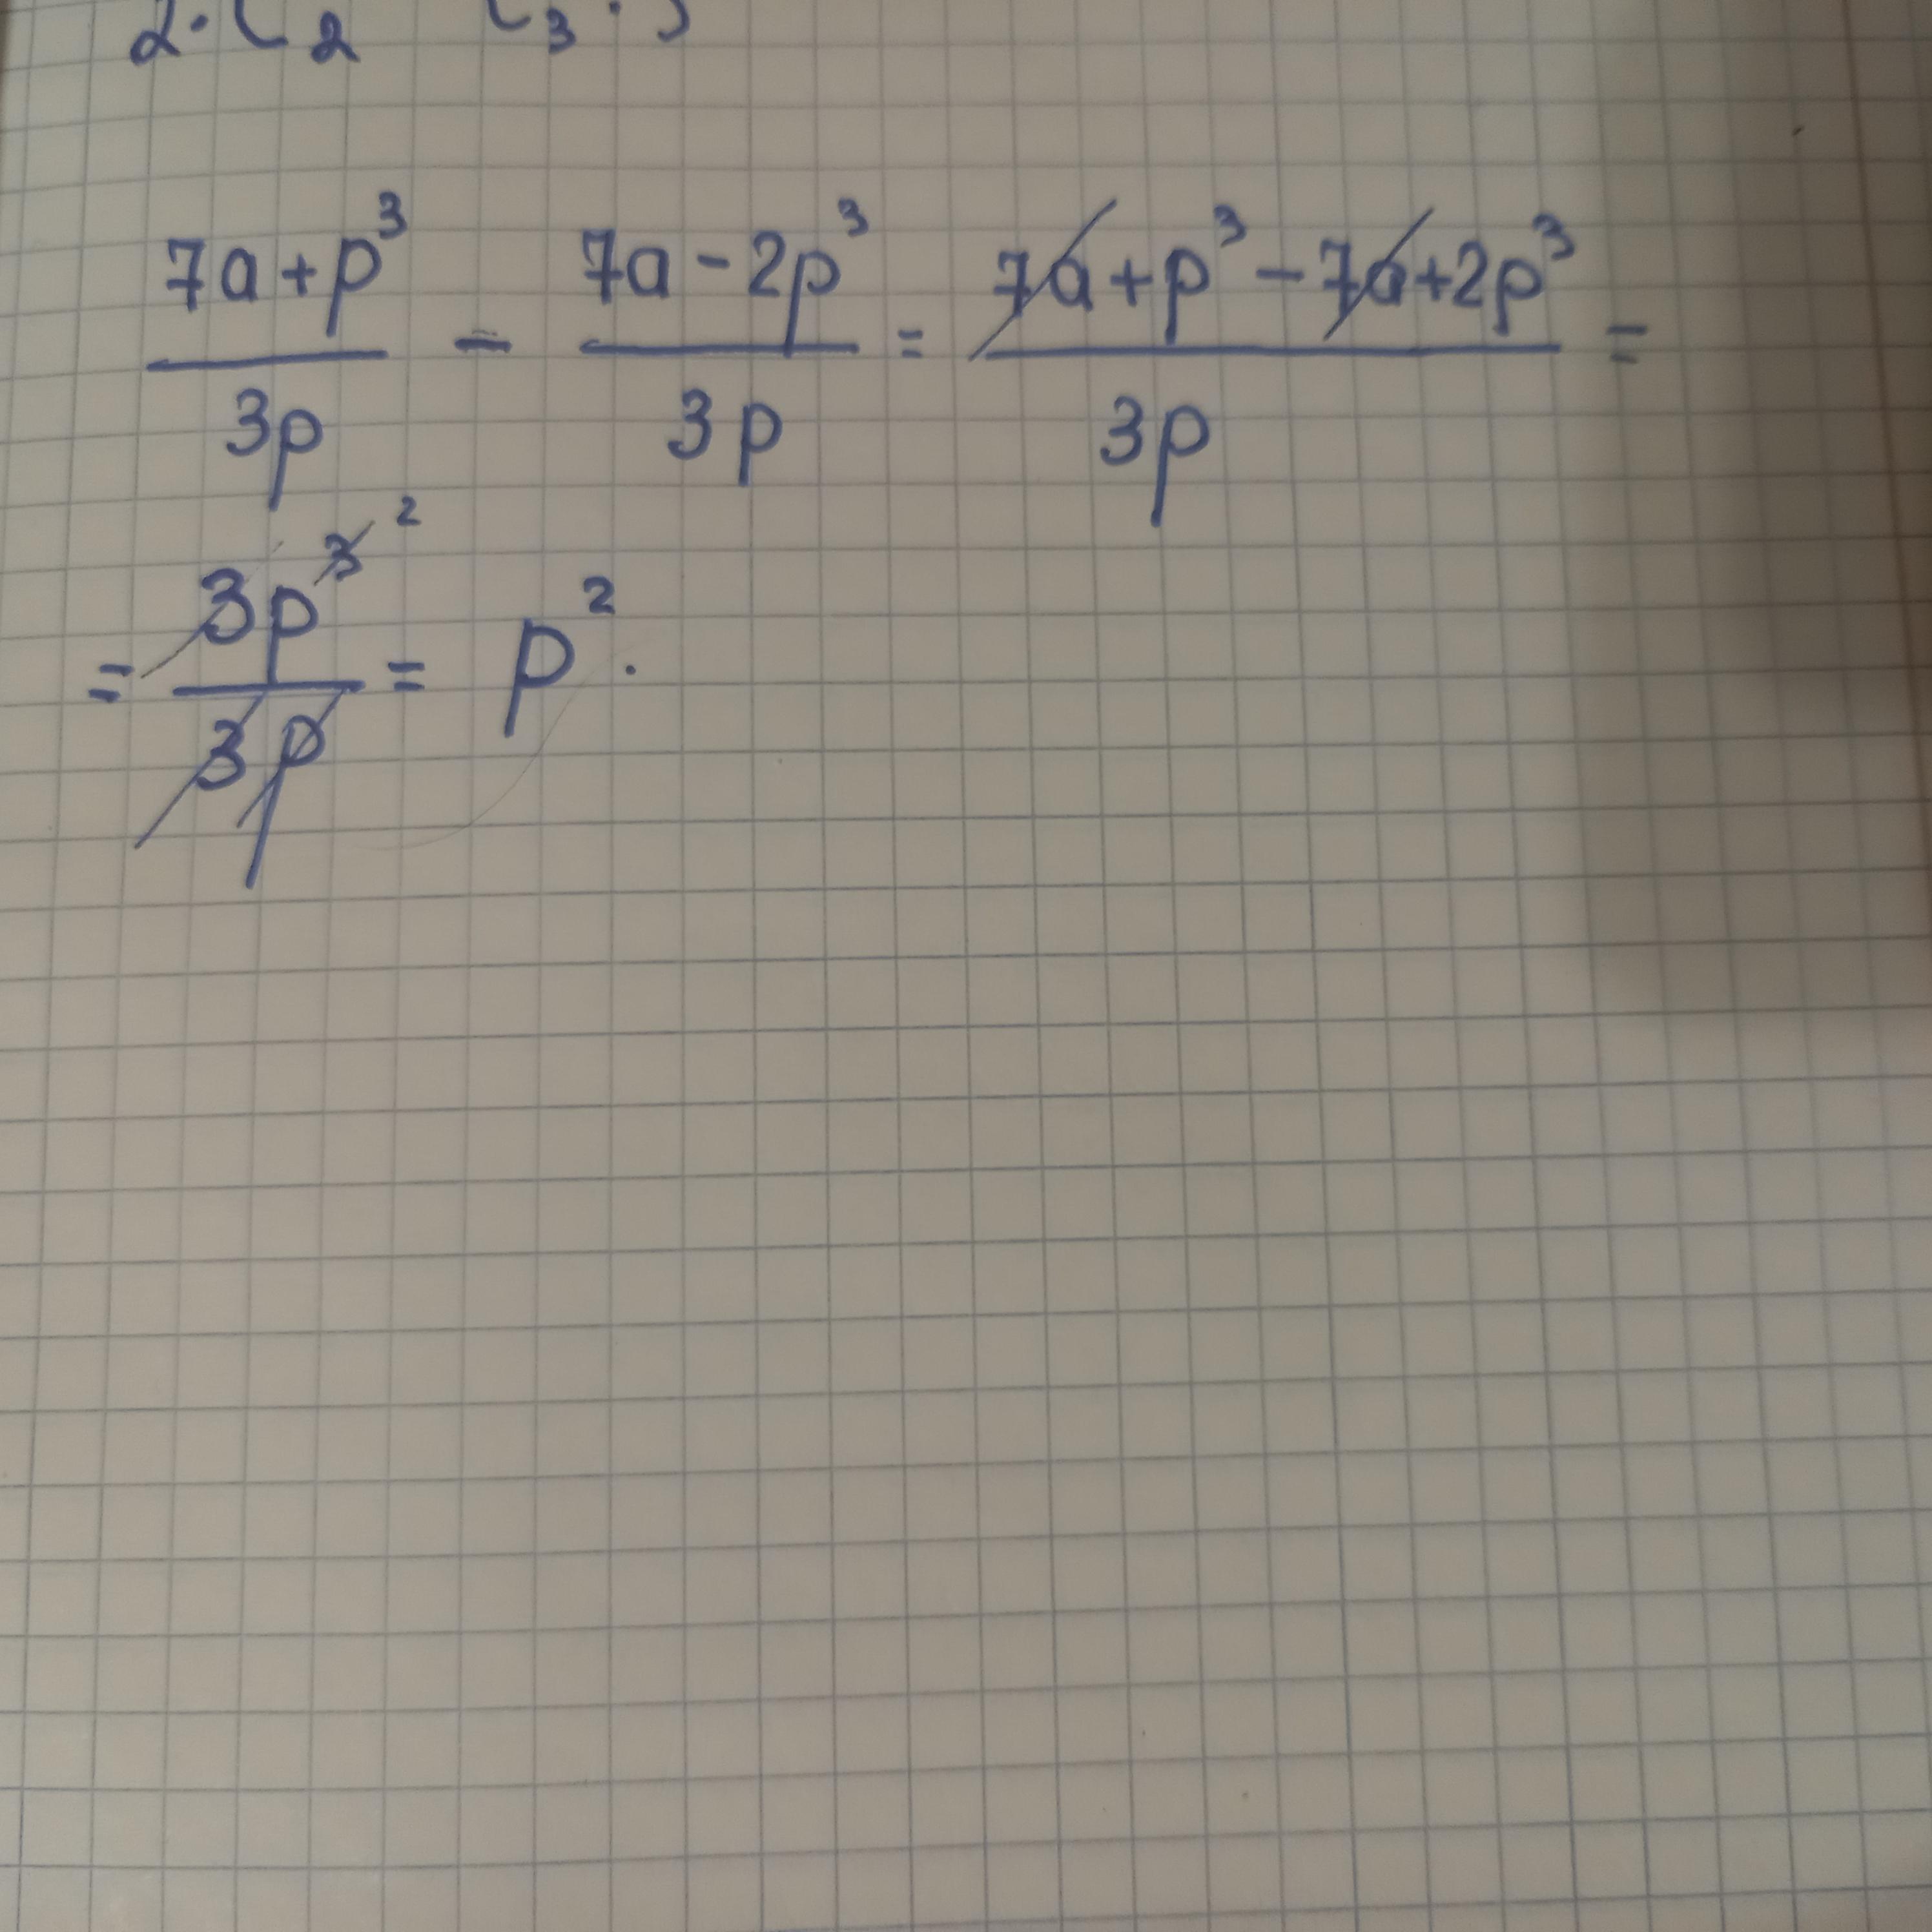 2. ( 2 ( 3 . )
7a+p³/3p - 7a-2p³/3p = 7a+p³-7a+2p³/3p =
= 3p³ ²/3p = p².